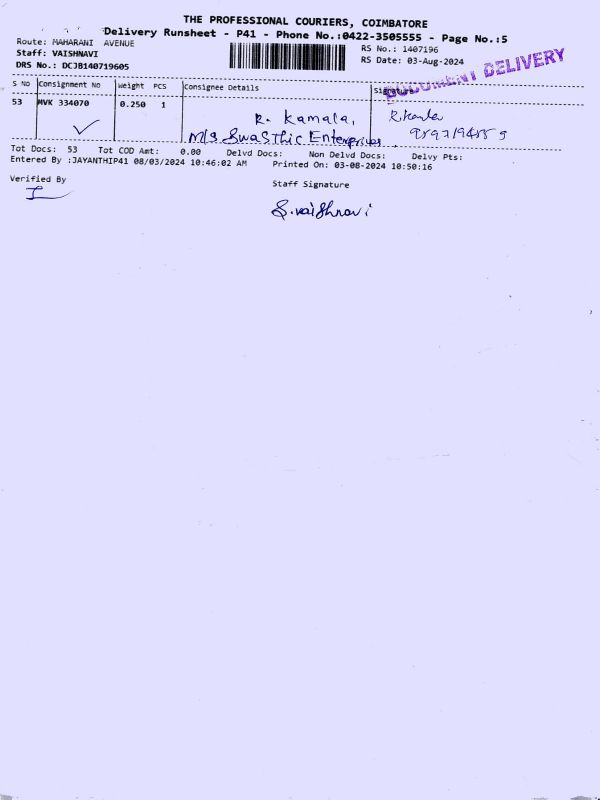 THE PROFESSIONAL COURIERS, COIMBATORE
Delivery Runsheet - P41 - Phone No.:0422-3505555 - Page No.:5
Route: MAHARANI AVENUE
RS No.: 1407196
Staff: VAISHNAVI
RS Date: 03-Aug-2024
DRS No.: DCJB140719605
DOCUMENT DELIVERY
S No Consignment No Weight PCS Consignee Details Signature
53 MVK 334070 0.250 1
R. Kamala,
M/s Swasthic Enterprises.
Tot Docs: 53 Tot COD Amt: 0.00 Delvd Docs: Non Delvd Docs: Delvy Pts:
Entered By :JAYANTHIP41 08/03/2024 10:46:02 AM Printed On: 03-08-2024 10:50:16
Verified By
Staff Signature
S.vaishnavi